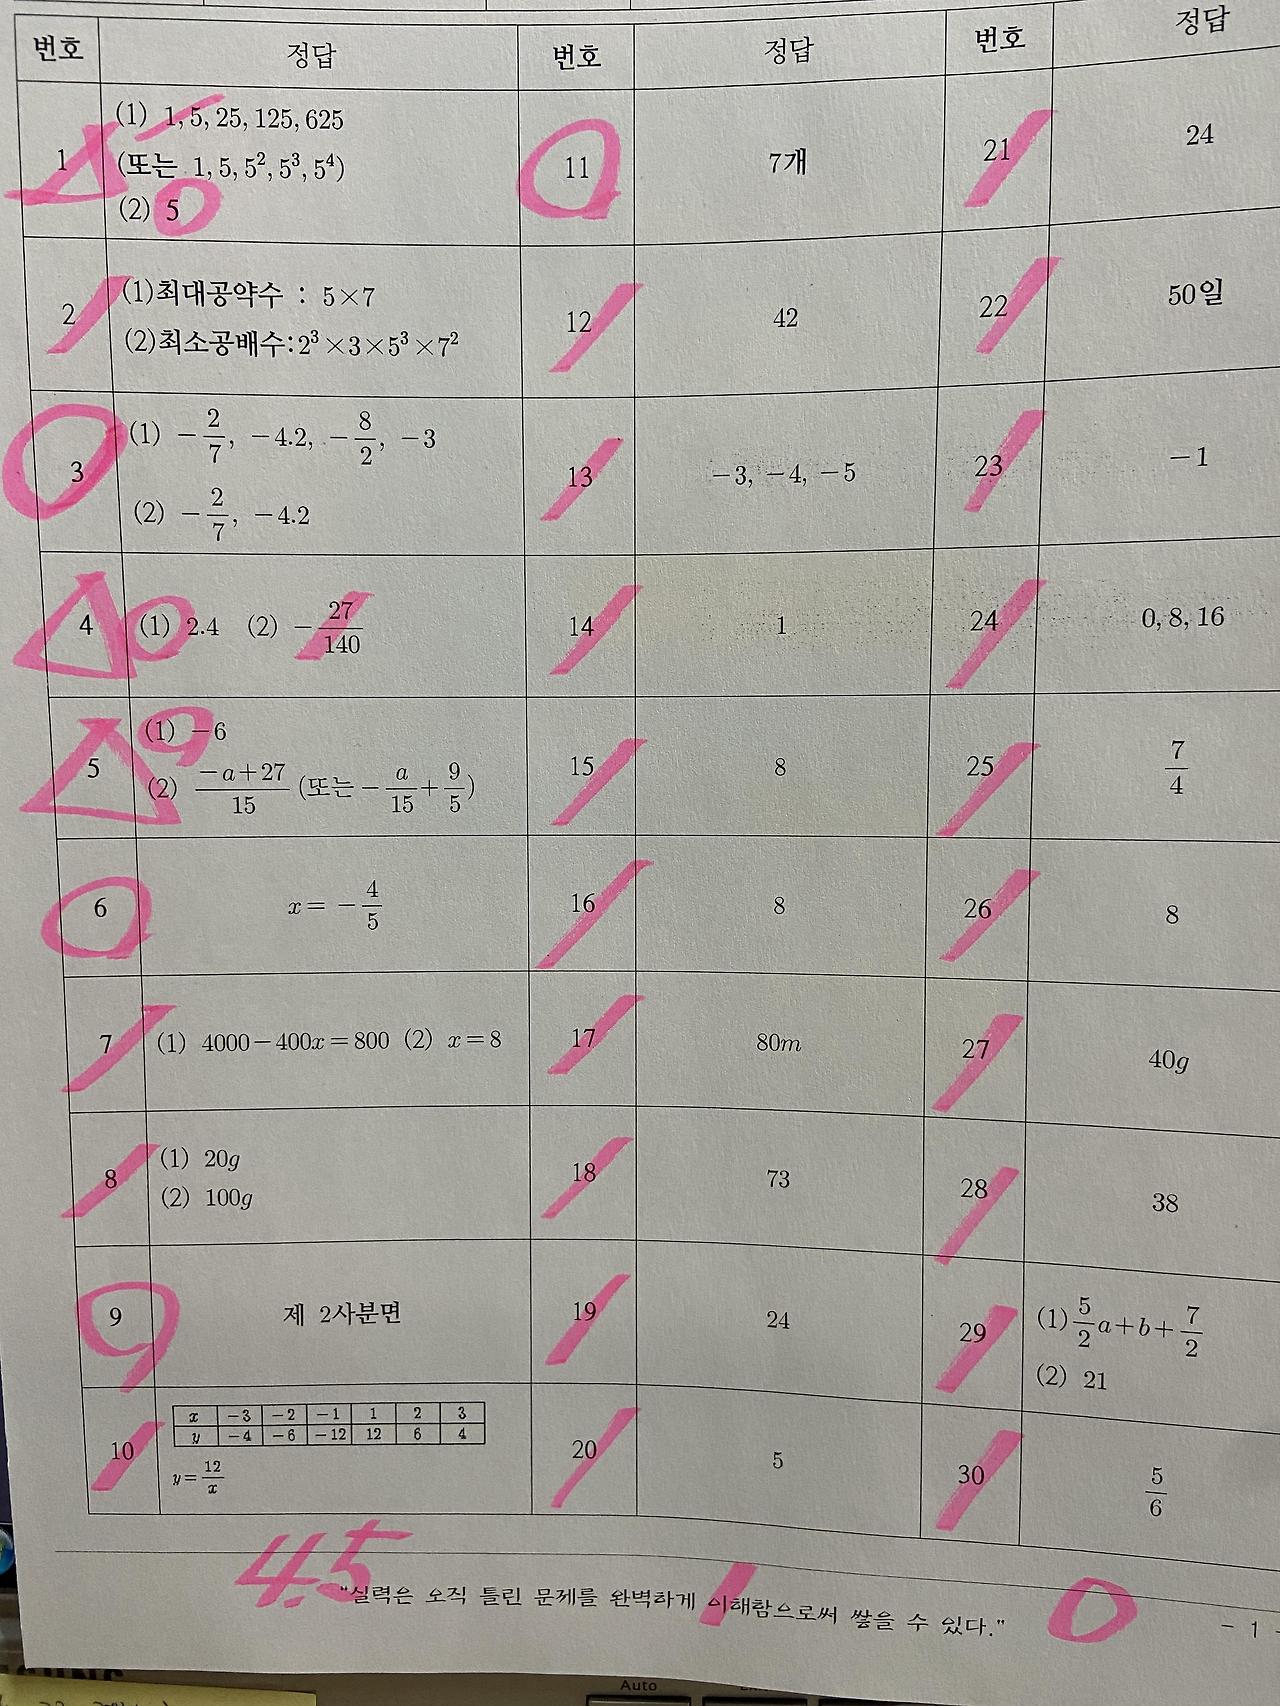 번호 정답 번호 정답 번호 정답
1
(1) 1, 5, 25, 125, 625
(또는 1, 5, 5², 5³, 5⁴)
(2) 5
11 7개
21 24
2
(1)최대공약수 : 5×7
(2)최소공배수:2³×3×5³×7²
12 42
22 50일
3
(1) -2/7, -4.2, -8/2, -3
(2) -2/7, -4.2
13 -3, -4, -5
23 -1
4 (1) 2.4 (2) -27/140
14 1
24 0, 8, 16
5
(1) -6
(2) (-a+27)/15 (또는 -a/15+9/5)
15 8
25 7/4
6 x=-4/5
16 8
26 8
7 (1) 4000-400x=800 (2) x=8
17 80m
27 40g
8
(1) 20g
(2) 100g
18 73
28 38
9 제 2사분면
19 24
29
(1) 5/2a+b+7/2
(2) 21
10
x -3 -2 -1 1 2 3
y -4 -6 -12 12 6 4
y=12/x
20 5
30 5/6
4.5 1 0
"실력은 오직 틀린 문제를 완벽하게 이해함으로써 쌓을 수 있다."
- 1 -
Auto